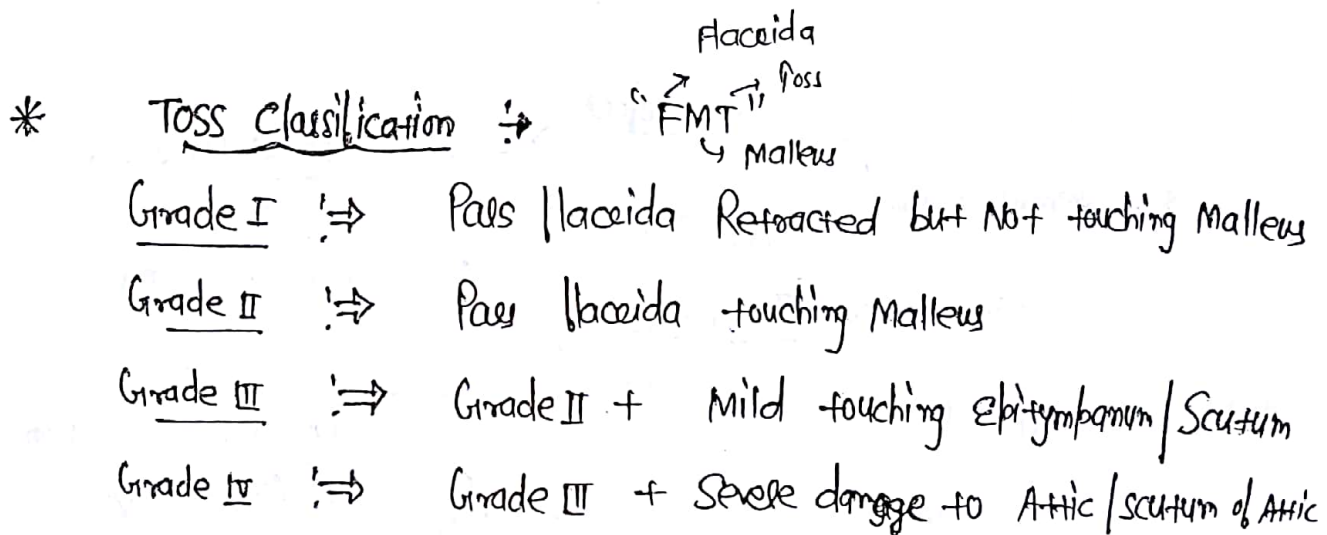 Flaccida
* Toss Classification :→ "FMT" → Toss
↳ Malleus
Grade I :⇒ Pars flaccida Retracted but Not touching Malleus
Grade II :⇒ Pars flaccida touching Malleus
Grade III :⇒ Grade II + Mild touching Epitympanum / Scutum
Grade IV :⇒ Grade III + Severe damage to Attic / scutum of Attic